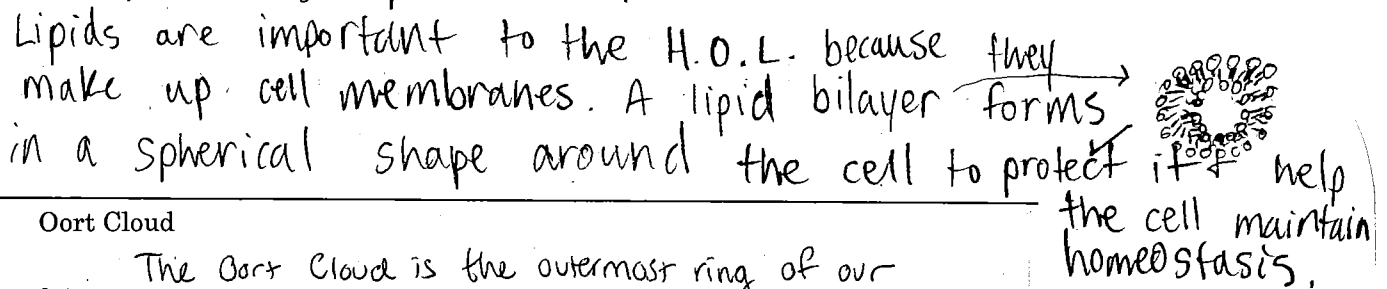 Lipids are important to the H.O.L. because they
make up cell membranes. A lipid bilayer forms
in a spherical shape around the cell to protect it & help
the cell maintain
homeostasis.
Oort Cloud
The Oort Cloud is the outermost ring of our